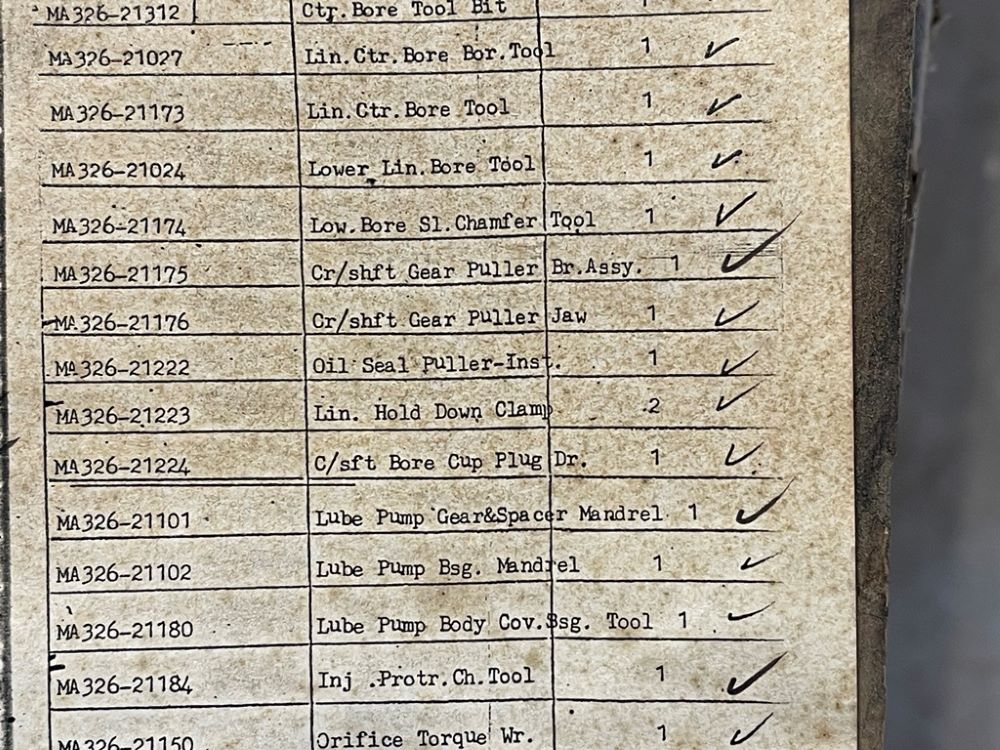 MA326-21312 Ctr.Bore Tool Bit 1
MA326-21027 Lin.Ctr.Bore Bor.Tool 1 ✓
MA326-21173 Lin.Ctr.Bore Tool 1 ✓
MA326-21024 Lower Lin.Bore Tool 1 ✓
MA326-21174 Low.Bore Sl.Chamfer Tool 1 ✓
MA326-21175 Cr/shft Gear Puller Br.Assy. 1 ✓
MA326-21176 Cr/shft Gear Puller Jaw 1 ✓
MA326-21222 Oil Seal Puller-Inst. 1 ✓
MA326-21223 Lin. Hold Down Clamp 2 ✓
MA326-21224 C/sft Bore Cup Plug Dr. 1 ✓
MA326-21101 Lube Pump Gear&Spacer Mandrel 1 ✓
MA326-21102 Lube Pump Bsg. Mandrel 1 ✓
MA326-21180 Lube Pump Body Cov.Bsg. Tool 1 ✓
MA326-21184 Inj .Protr.Ch.Tool 1 ✓
MA326-21150 Orifice Torque Wr. 1 ✓